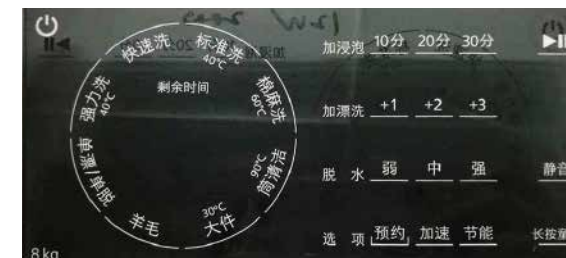 快速洗
标准洗
40℃
棉麻洗
60℃
筒清洁
90℃
大件
30℃
羊毛
单漂/单脱
强力洗
40℃
剩余时间
加浸泡 10分 20分 30分
加漂洗 +1 +2 +3
脱水 弱 中 强
静音
选项 预约 加速 节能
长按童
8kg